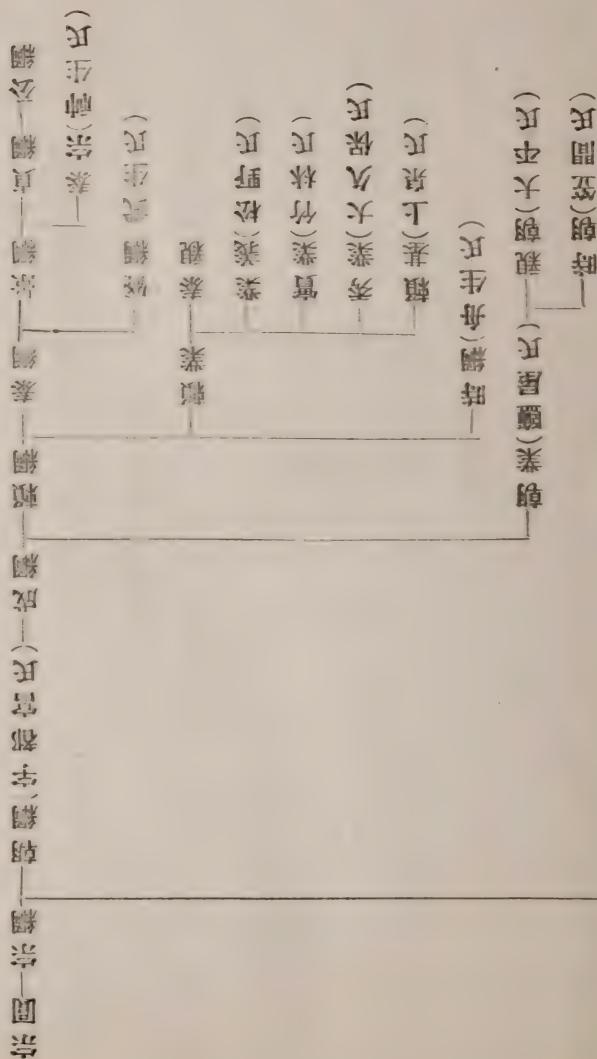 宗圓―宗綱―朝綱(宇都宮氏)―成綱―頼綱―泰綱―景綱―貞綱―公綱
泰宗(師生氏)
綱 武生氏)
頼業―泰親
業義(松野氏)
實業(竹林氏)
秀業(大久保氏)
頼基(上泉氏)
時綱(舟生氏)
朝業(鹽屋氏)―親朝(大平氏)
時朝(笠間氏)